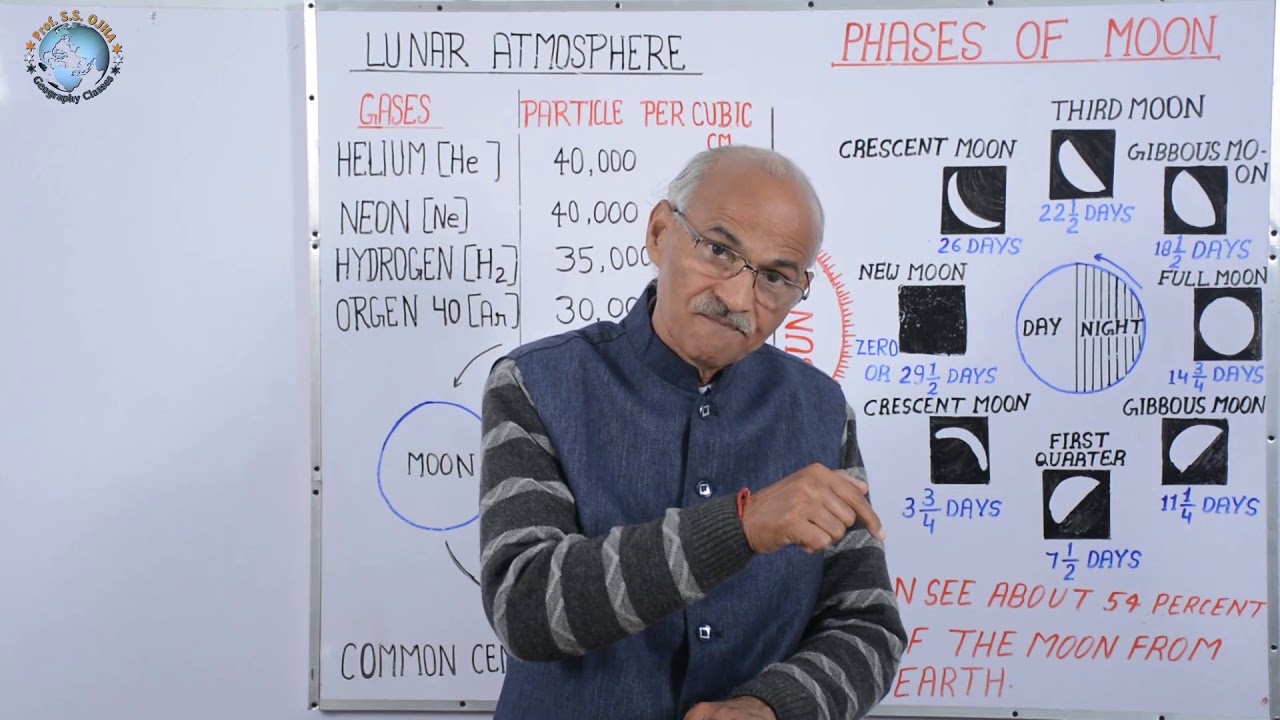 Prof. S.S. OJHA
Geography Classes
LUNAR ATMOSPHERE
GASES
PARTICLE PER CUBIC
CM
HELIUM [He]
40,000
NEON [Ne]
40,000
HYDROGEN [H2]
35,000
ORGEN 40 [Ar]
30,0
MOON
COMMON CEN
PHASES OF MOON
THIRD MOON
22 1/2 DAYS
CRESCENT MOON
26 DAYS
GIBBOUS MO-
ON
18 1/2 DAYS
NEW MOON
ZERO
OR 29 1/2 DAYS
DAY NIGHT
FULL MOON
14 3/4 DAYS
UN
CRESCENT MOON
3 3/4 DAYS
FIRST
QUARTER
7 1/2 DAYS
GIBBOUS MOON
11 1/4 DAYS
N SEE ABOUT 54 PERCENT
F THE MOON FROM
EARTH.